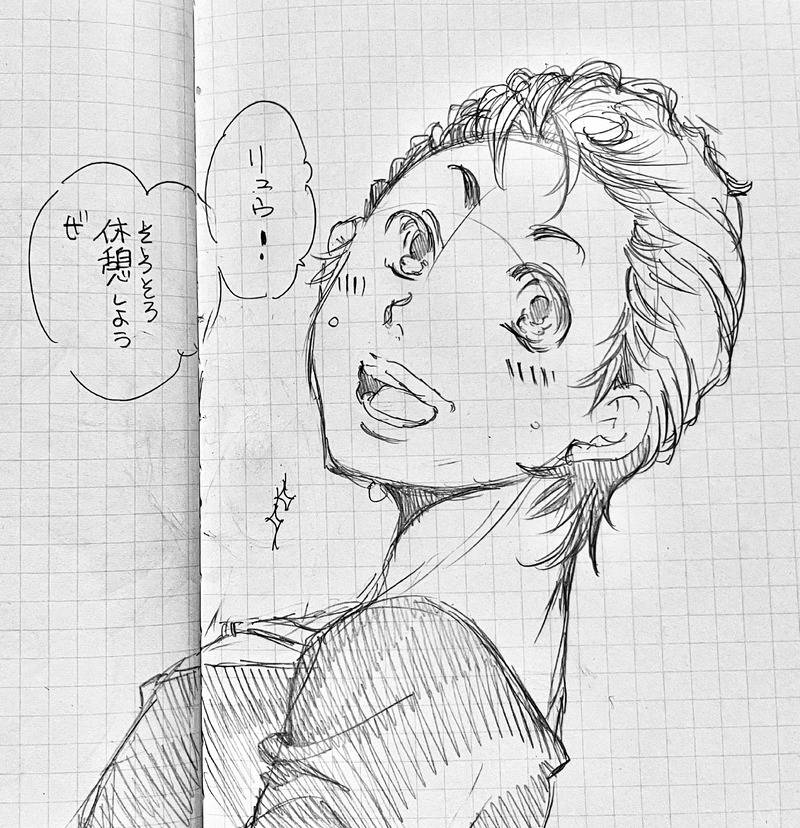 リュウ!
そろそろ
休憩しよう
ぜ